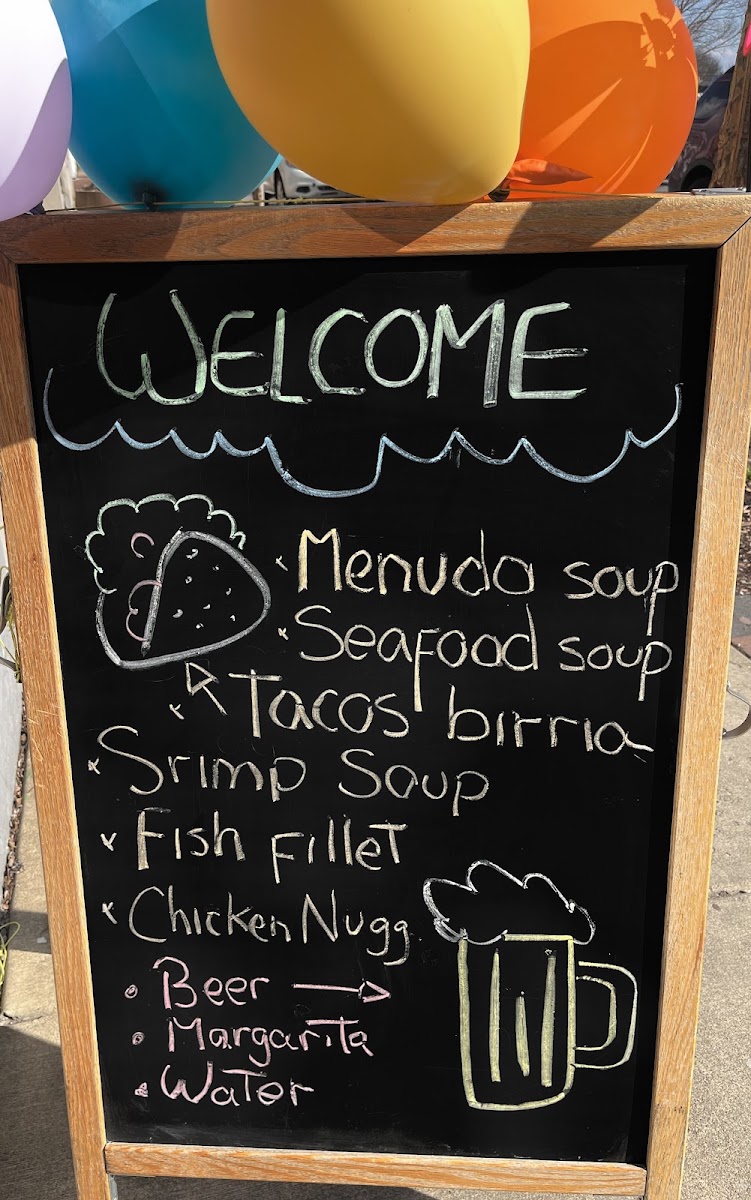 WELCOME
Menudo soup
Seafood soup
Tacos birria
Srimp Soup
Fish Fillet
Chicken Nugg
Beer
Margarita
Water